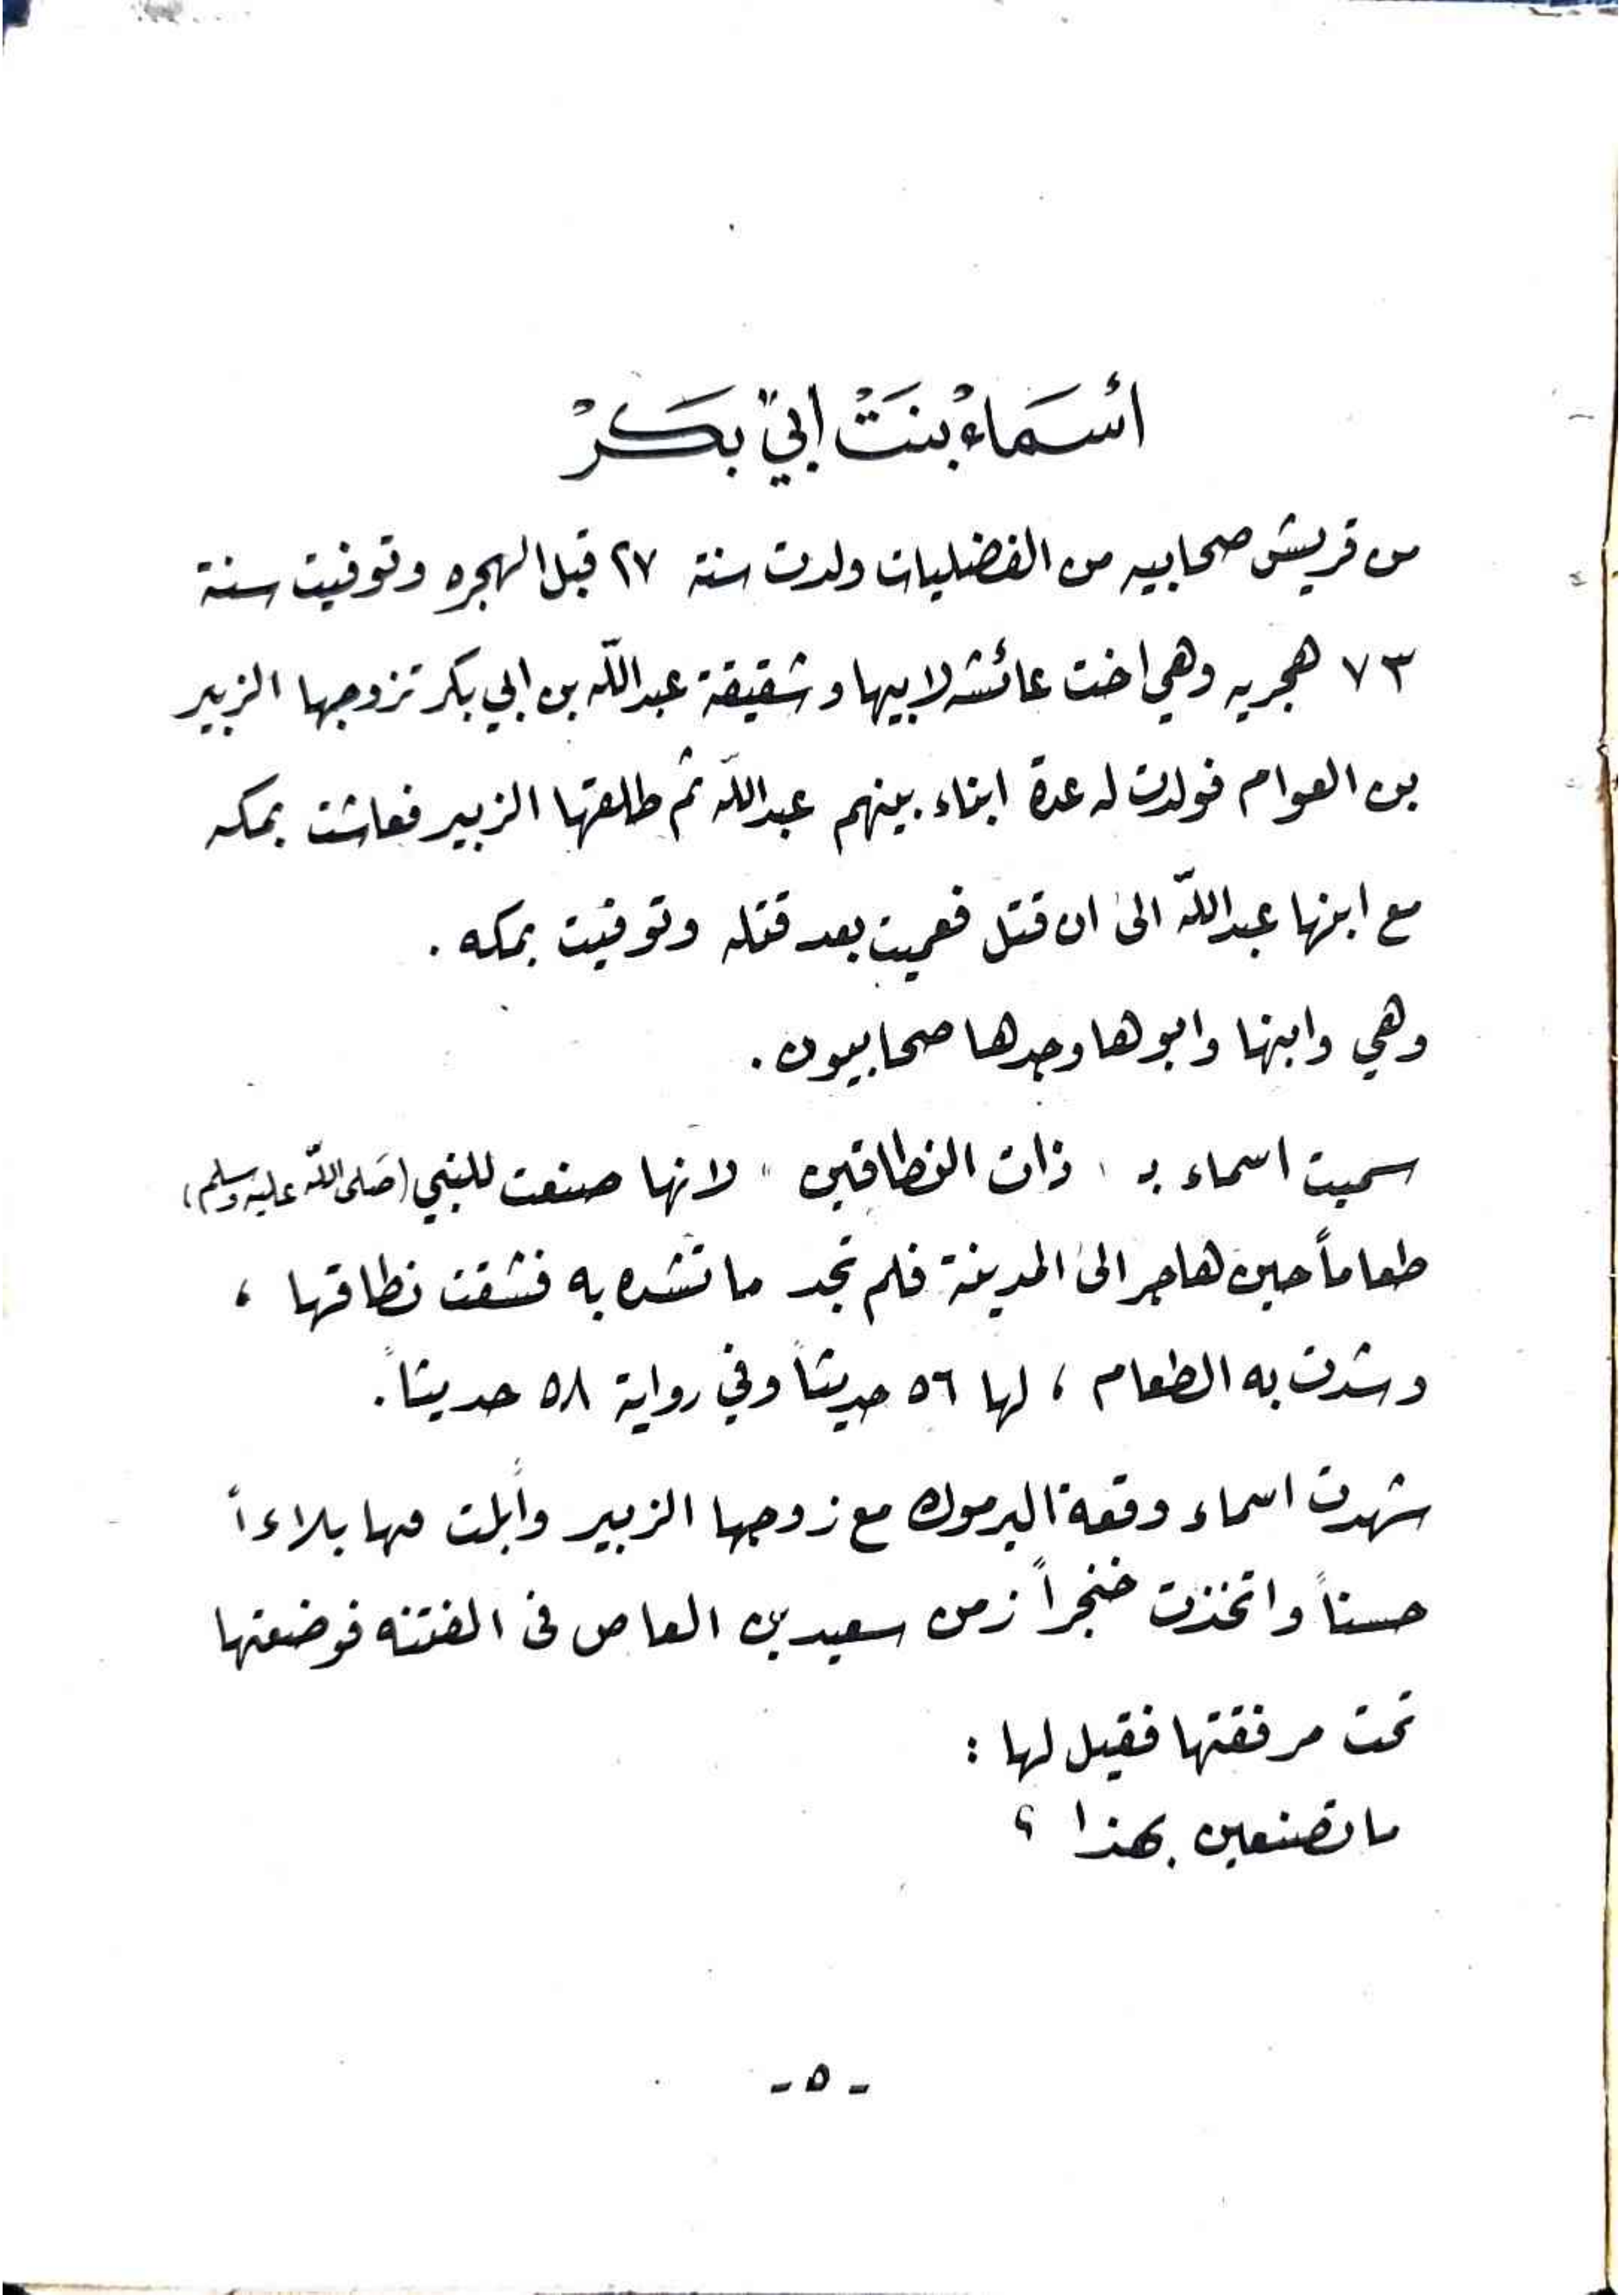 أسَماءْ بنَتْ ابيّ بَكَرْ
من قريش صحابيه من الفضليات ولدت سنة ٢٧ قبل الهجره وتوفيت سنة
٧٣ هجريه وهي اخت عائشه لابيها وشقيقة عبدالله بن ابي بكر تزوجها الزبير
بن العوام فولدت له عدة ابناء بينهم عبدالله ثم طلقها الزبير فعاشت بمكه
مع ابنها عبدالله الى ان قتل فعميت بعد قتله وتوفيت بمكه .
وهي وابنها وابوها وجدها صحابيون .
سميت اسماء بـ " ذات النطاقين " لانها صنعت للنبي (صَلى الله عليه وسلم)
طعاماً حين هاجر الى المدينة فلم تجد ما تشده به فشقت نطاقها ،
وشدت به الطعام ، لها ٥٦ حديثاً وفي رواية ٥٨ حديثاً .
شهدت اسماء وقعة اليرموك مع زوجها الزبير وأبلت فها بلاءاً
حسناً واتخذت خنجراً زمن سعيد بن العاص فى الفتنه فوضعتها
تحت مرفقتها فقيل لها :
ما تصنعين بهذا ؟
- ٥ -